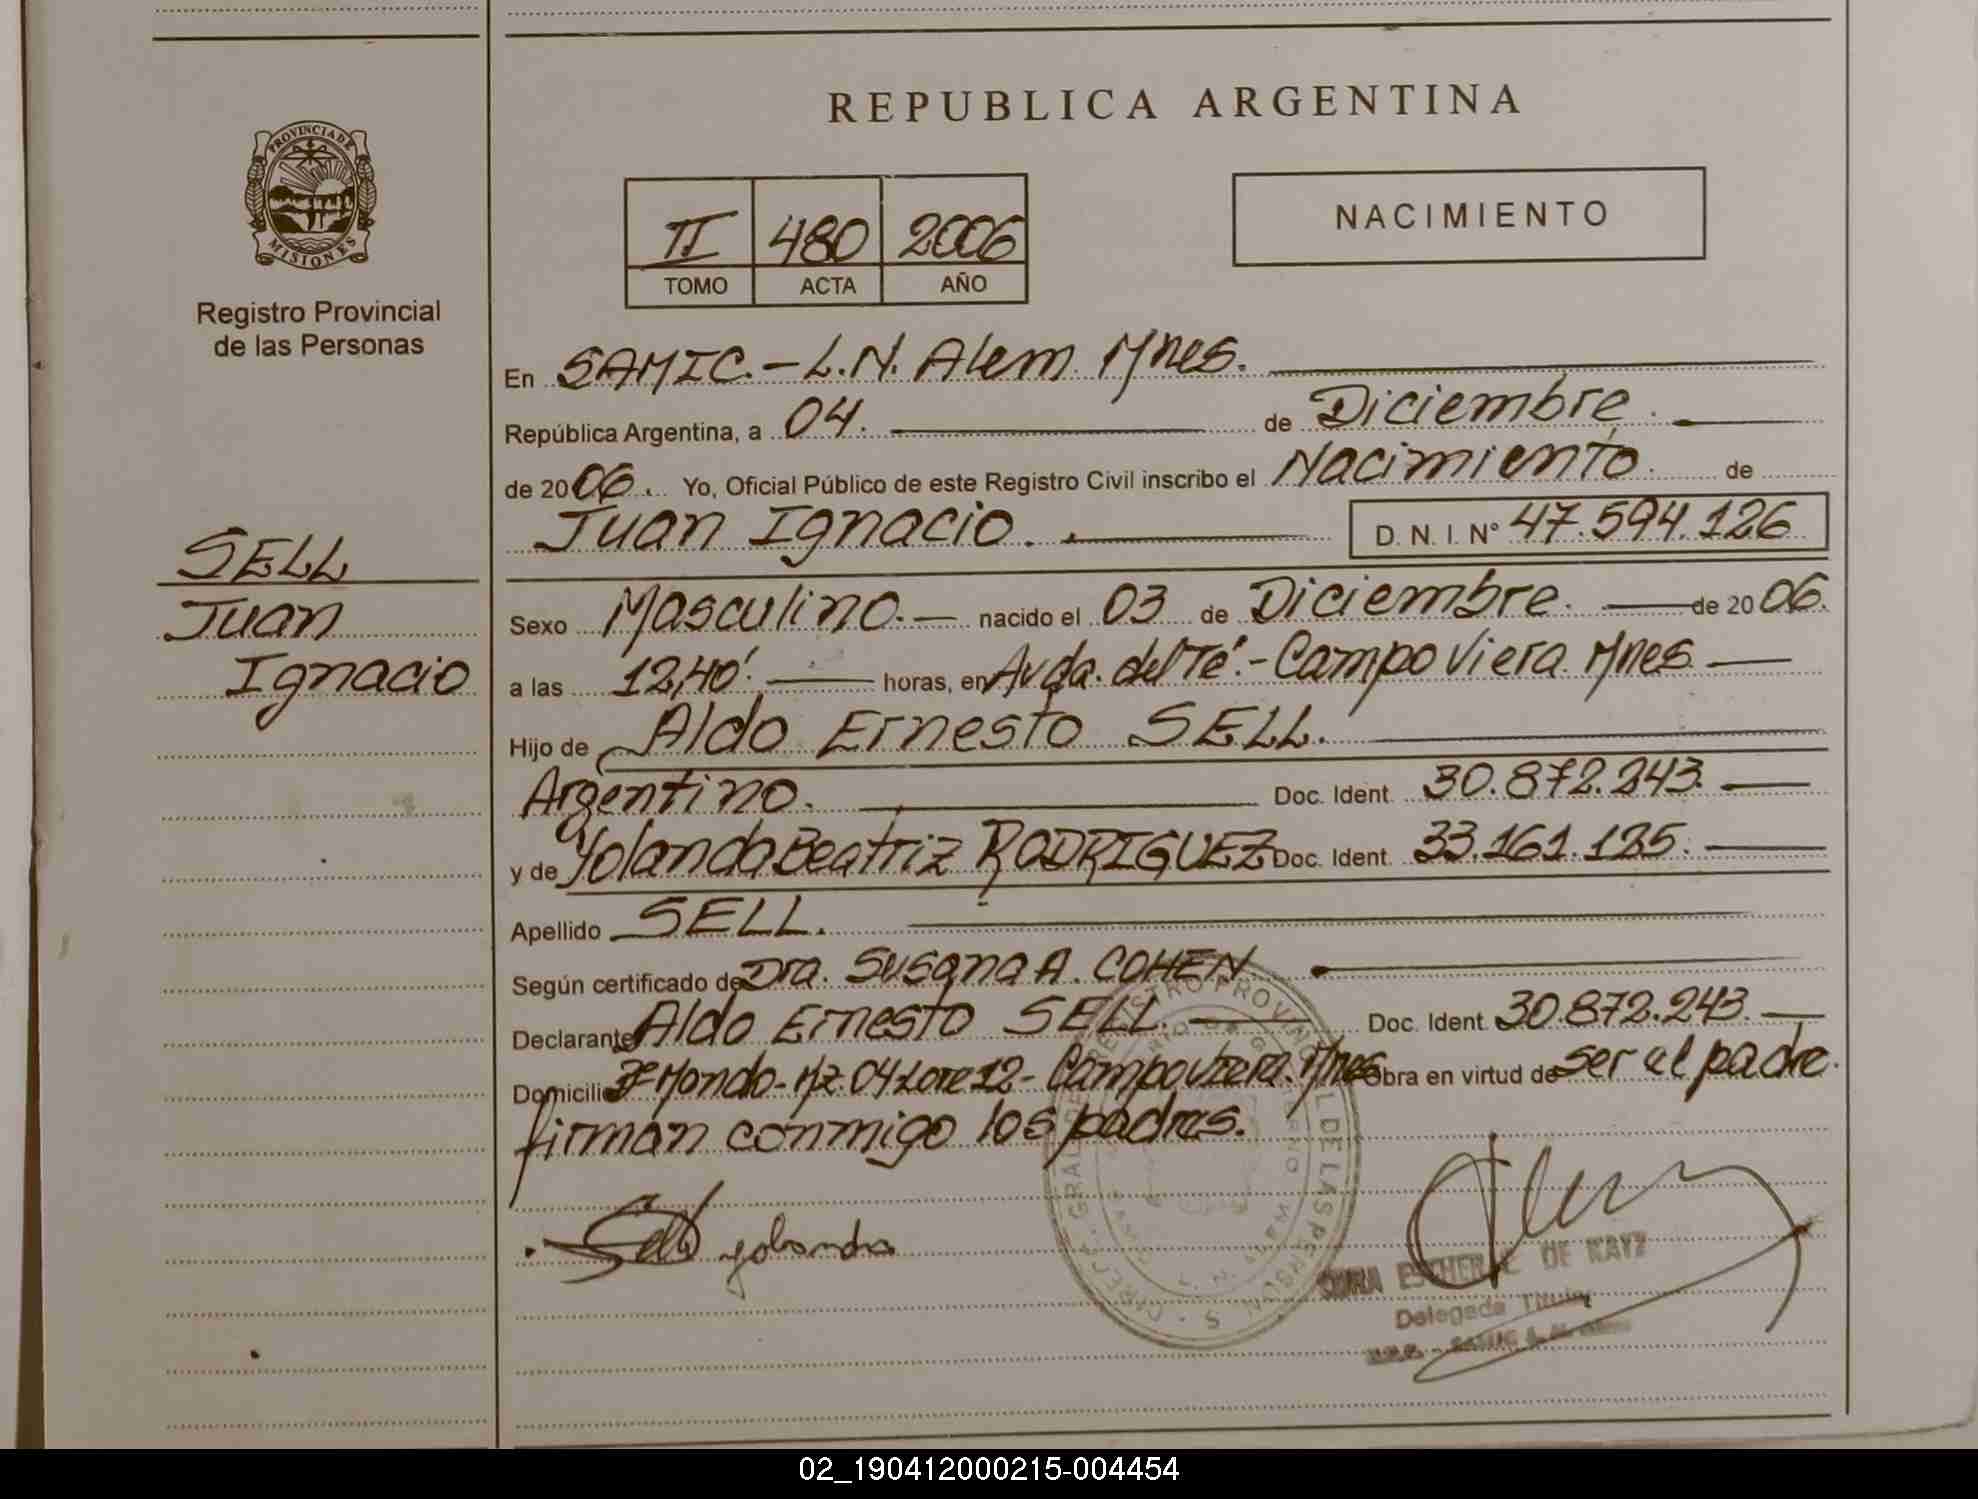 REPUBLICA ARGENTINA
PROVINCIA DE MISIONES
Registro Provincial
de las Personas
II 480 2006
TOMO ACTA AÑO
NACIMIENTO
En SAMIC.-L.N. Alem Mnes.
República Argentina, a 04. de Diciembre.
de 2006. Yo, Oficial Público de este Registro Civil inscribo el Nacimiento. de
Juan Ignacio. D. N. I. Nº 47.594.126
SELL
Juan
Ignacio
Sexo Masculino.- nacido el 03 de Diciembre. de 2006.
a las 12,40'. horas, en Avda. del Té.- Campo Viera Mnes
Hijo de Aldo Ernesto SELL.
Argentino. Doc. Ident. 30.872.243.
y de Yolanda Beatriz RODRIGUEZ Doc. Ident. 33.161.125.
Apellido SELL.
Según certificado de Dra. Susana A. COHEN
Declarante Aldo Ernesto SELL. Doc. Ident. 30.872.243.
Domicilio Mondo-Mz.04 Lote 12- Campo Viera. Mnes Obra en virtud de ser el padre.
firman conmigo los padres.
Sell yolanda
ESTHER DE KATZ
Delegada Titular
02_190412000215-004454